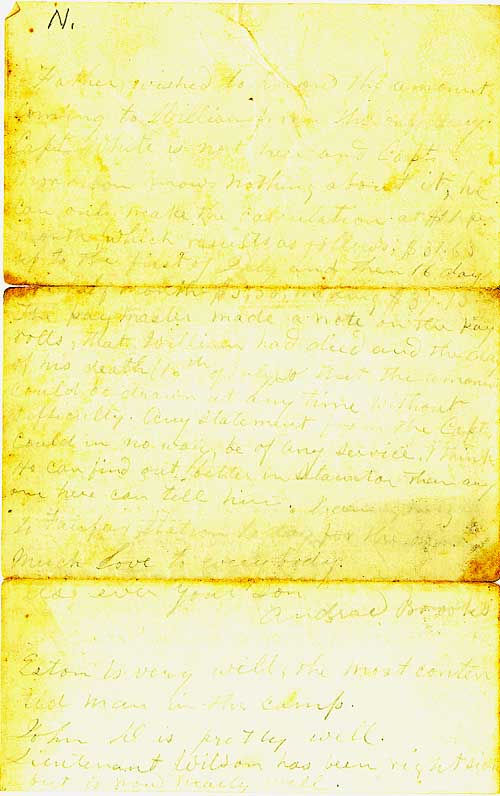 N.
Father wished to know the amount
coming to William from the
Capt. White is not here and Capt.
knows nothing about it, he
can only make the calculation at $11 per
month which results as follows: $37.63
up to the first of July and then 16 days
making
The paymaster made a note on the Pay
rolls, that William had died and the day
of his death, (16th of July) so that the amount
could be drawn at any time without
difficulty. Any statement from the Capt.
could in no way, be of any service, I think
He can find out better in Staunton than any
one here can tell him.
to Fairfax Station today for the
Much love to everybody.
As ever your Son
Andrew Brooks
Eston is very well, the most conten
ted man in the camp.
John is pretty well.
Lieutenant Wilson has been right sick
but is now nearly well.